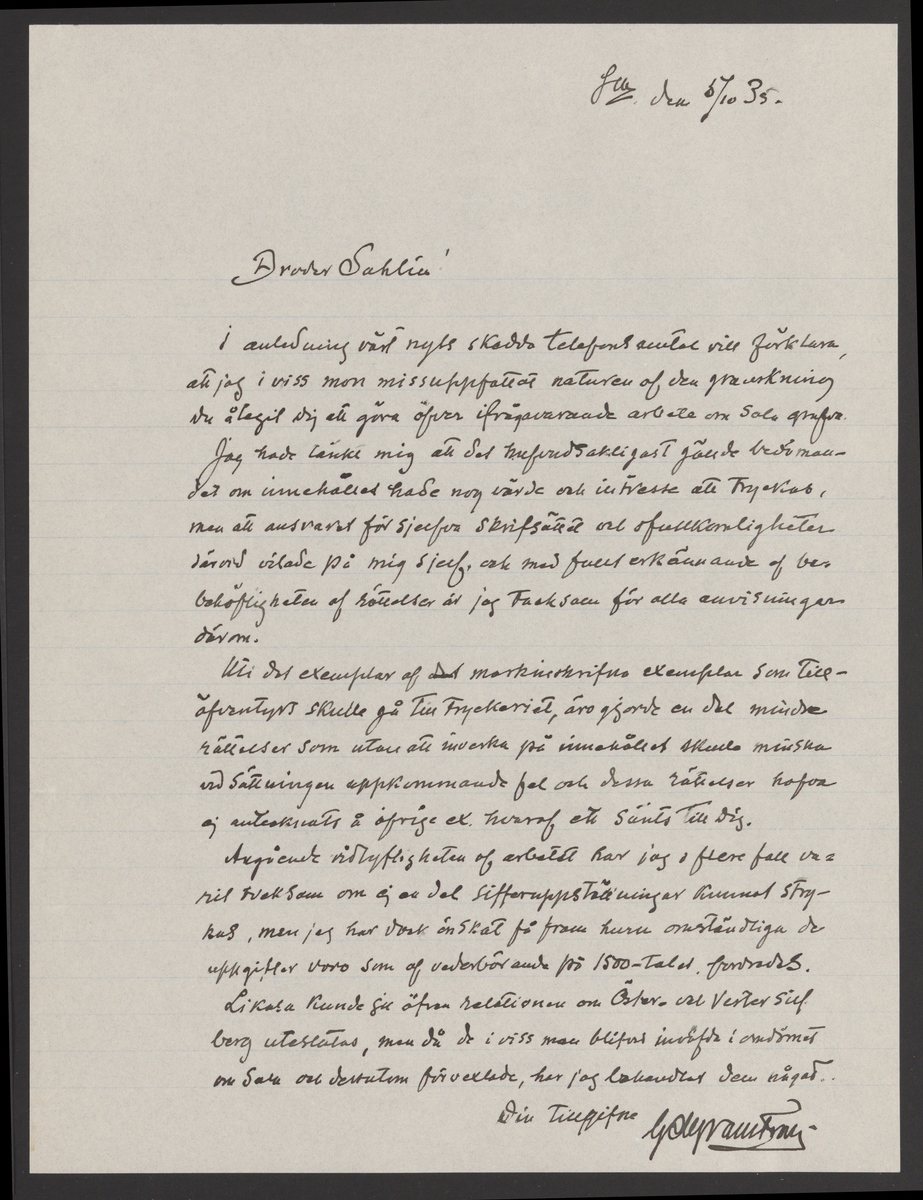 Sthm. den 5/10 35.
Broder Sahlin!
I anledning vårt nyss skedda telefonsamtal vill förklara,
att jag i viss mon missuppfattat naturen af den granskning
Du ålagit Dig att göra öfver ifrågavarande arbete om Sala grufva.
Jag hade tänkt mig att det hufvudsakligast gällde bedöman-
det om innehållet hade nog värde och intresse att tryckas,
men att ansvaret för sjelfva skrifsättet och ofullkomligheter
därvid vilade på mig sjelf, och med fullt erkännande af be-
behöfligheten af rättelser är jag tacksam för alla anvisningar
därom.
Uti det exemplar af det maskinskrifna exemplar som till-
äfventyrs skulle gå till tryckeriet, äro gjorde en del mindre
rättelser som utan att inverka på innehållet skulle minska
vid sättningen uppkommande fel och dessa rättelser hafva
ej antecknats å öfriga ex. hvaraf ett sänts till Dig.
Angående vidlyftigheten af arbetet har jag i flere fall va-
rit tveksam om ej en del sifferuppställningar kunnat stry-
kas, men jag har dock önskat få fram huru omständliga de
uppgifter voro som af vederbörande på 1500-talet fordrades.
Likaså kunde ju öfven relationen om Öster- och Vester Silf-
berg uteslutas, men då de i viss mon blifvit invöfda i omdömet
om Sala och dessutom förvexlade, har jag behandlat dem något.
Din tillgifne
G Granström